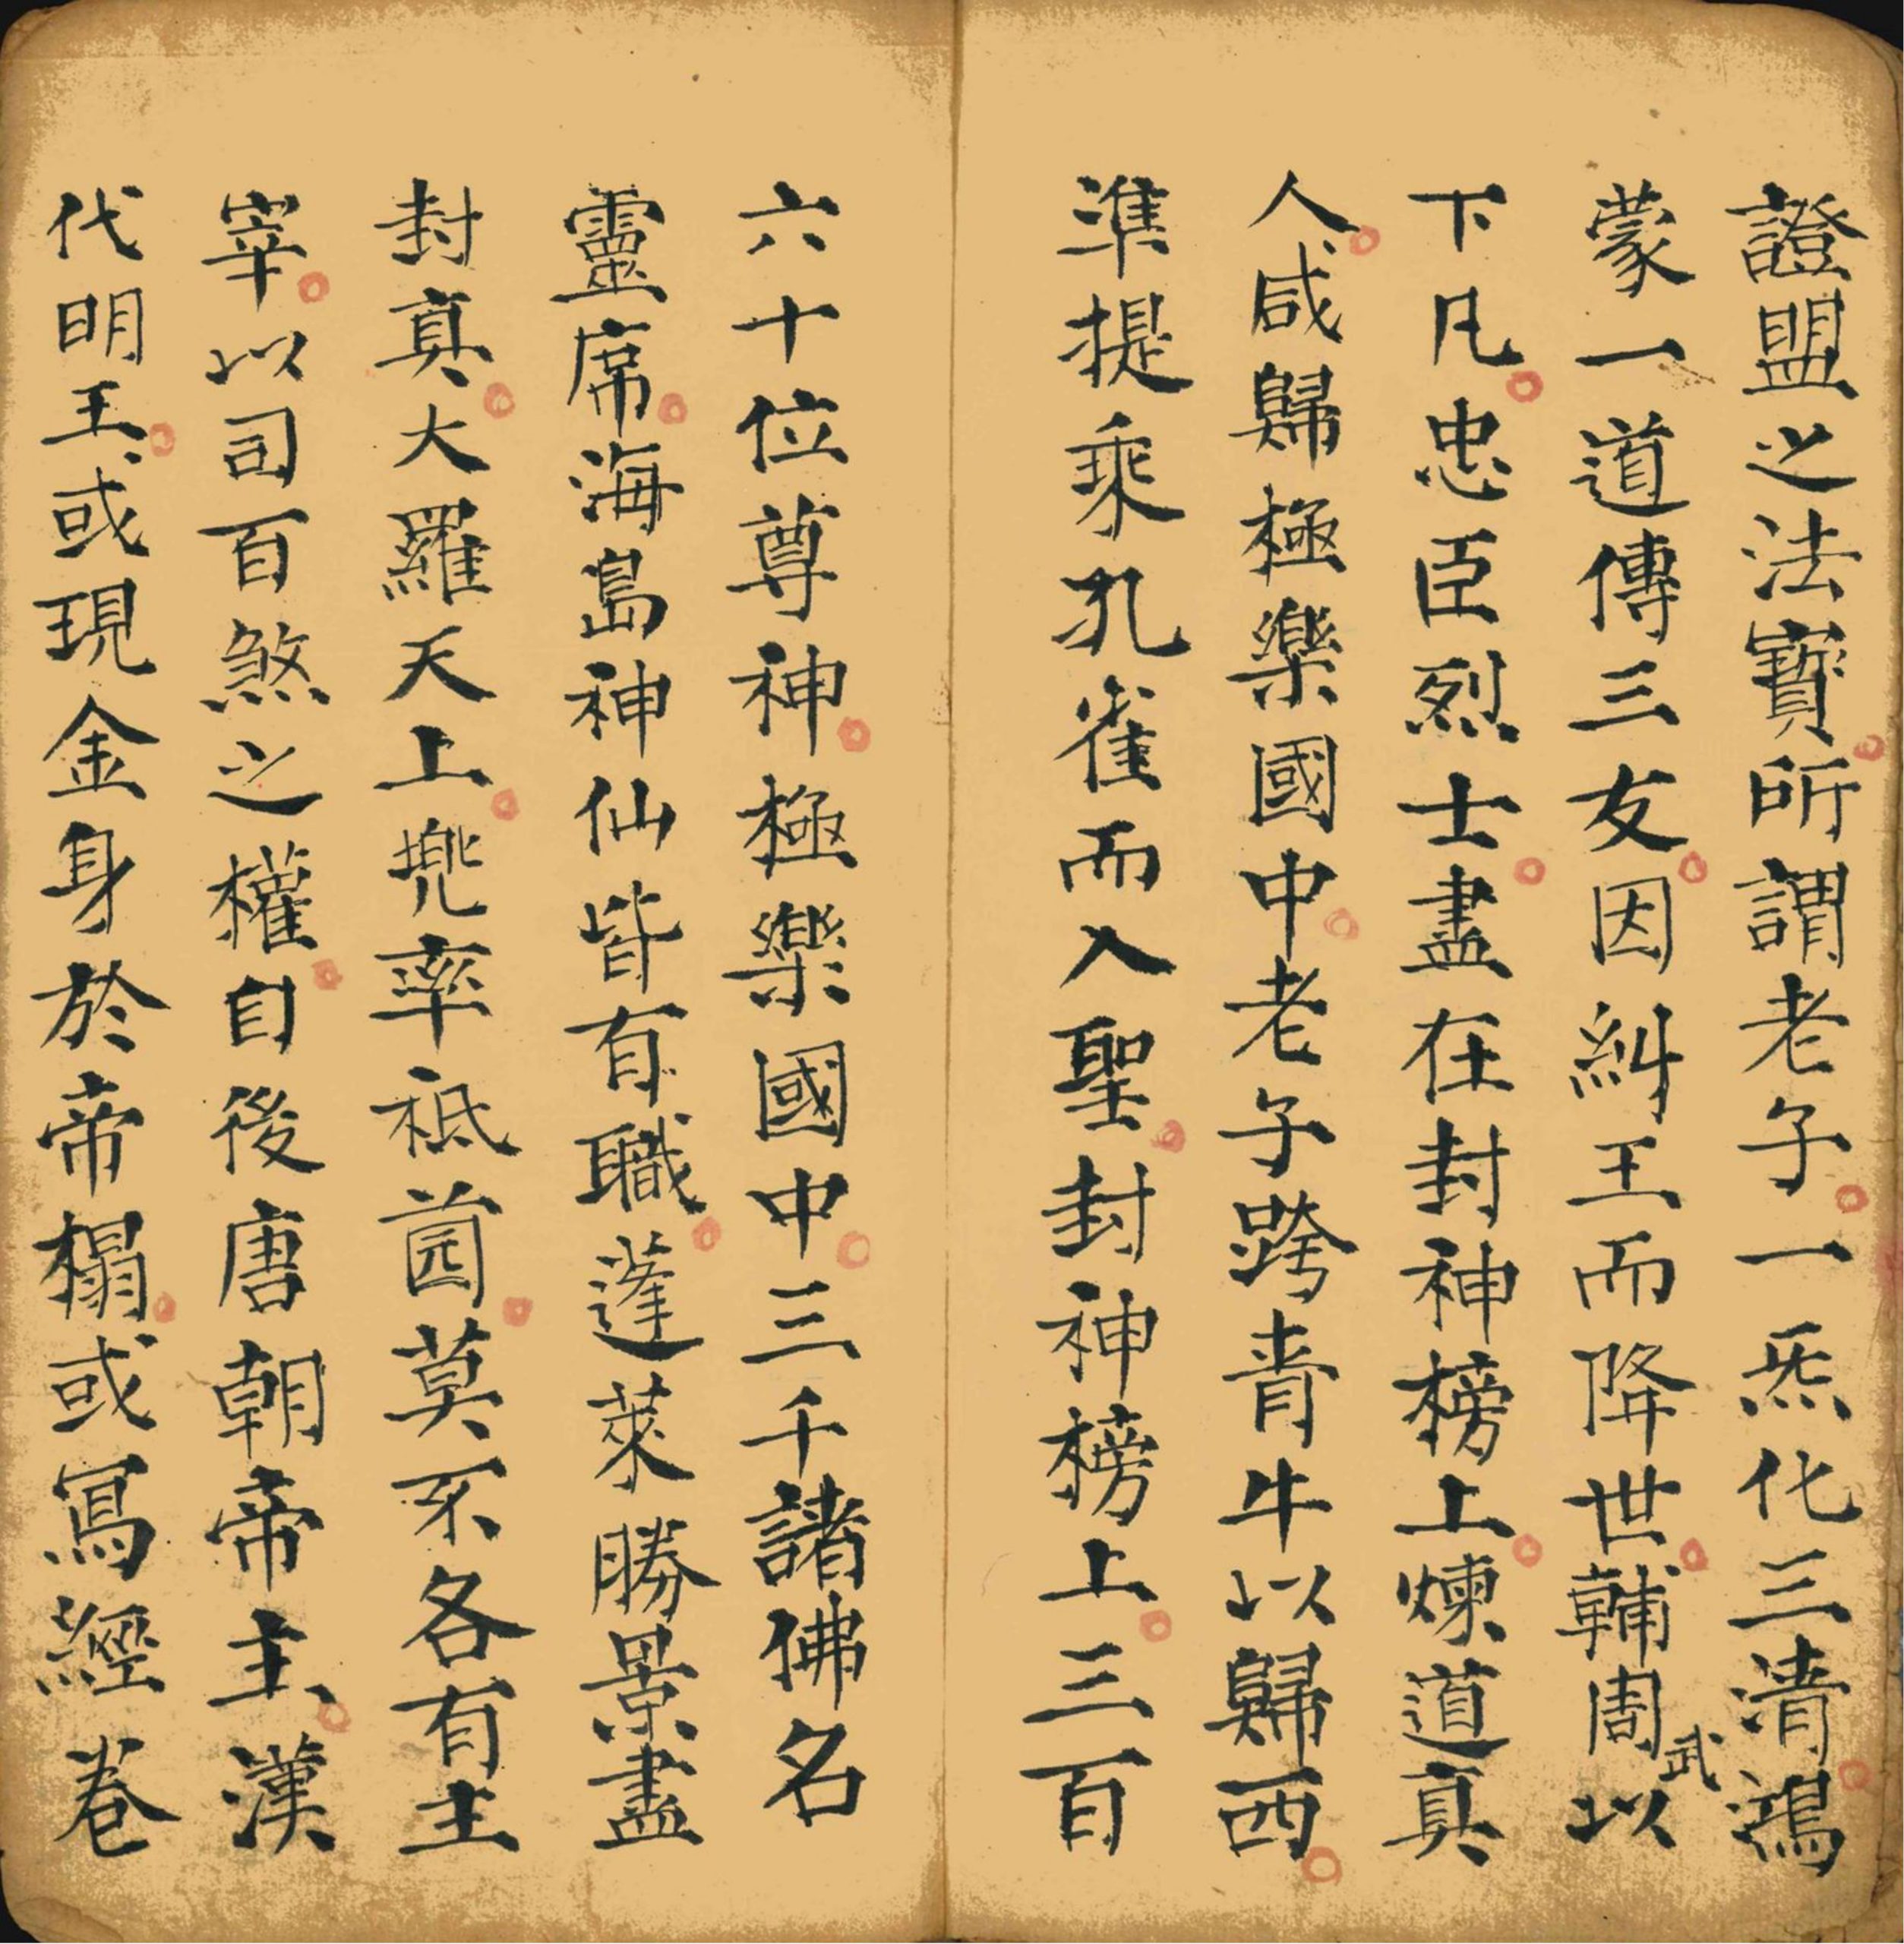 證盟之法寳所謂老子一炁化三清鴻
蒙一道傳三友因糾王而降世輔周武以
下凡忠臣烈士盡在封神榜上煉道真
人咸歸極樂國中老子跨青牛以歸西
準提乘孔雀而入聖封神榜上三百
六十位尊神極樂國中三千諸佛名
靈席海島神仙皆有職蓬萊勝景盡
封真大羅天上兠率祗园莫不各有主
宰以司百煞之權自後唐朝帝主漢
代明王或現金身於帝榻或寫經卷